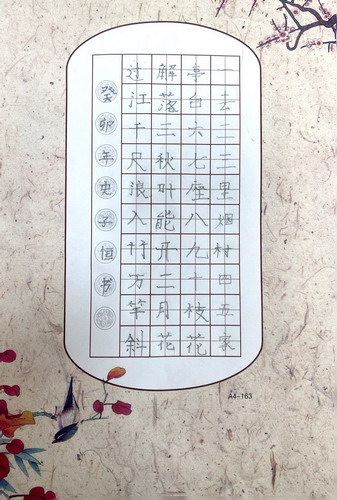 一去二三里烟村四五家
亭台六七座八九十枝花
解落三秋叶能开二月花
过江千尺浪入竹万竿斜
癸卯年史子恒书
A4-163